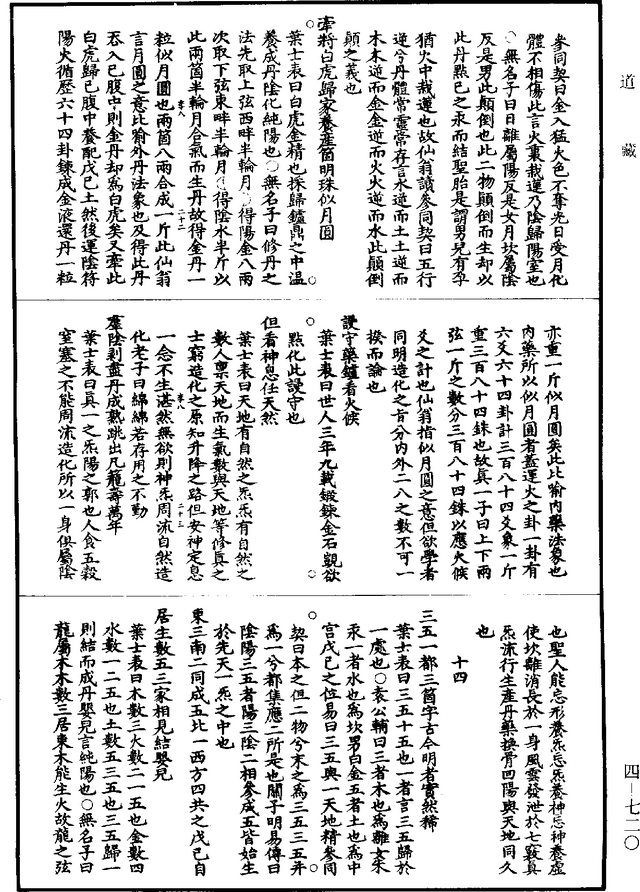 道藏
參同契曰金入猛火色不奪光日受月化
體不相傷此言火裏栽蓮乃陰歸陽室也
○無名子曰日離屬陽反是女月坎屬陰
反是男此顛倒也此二物顛倒而生却以
此丹點己之汞而結聖胎是謂男兒有孕
猶火中栽蓮也故仙翁讀參同契曰五行
逆兮丹體常靈常存言水逆而土土逆而
木木逆而金金逆而火火逆而水此顛倒
顛之義也
牽將白虎歸家養產箇明珠似月圓
葉士表曰白虎金精也採歸鑪鼎之中溫
養成丹陰化純陽也○無名子曰修丹之
法先取上弦西畔半輪月得陽金八兩
次取下弦東畔半輪月得陰水半斤以
此兩箇半輪月合氣而生丹故得金丹一
粒似月圓也兩箇八兩合成一斤此仙翁
言月圓之意比喻外丹法象也及得此丹
吞入己腹中則金丹却為白虎矣又牽此
白虎歸己腹中養配戊己土然後運陰符
陽火循歷六十四卦鍊成金液還丹一粒
亦重一斤似月圓矣此比喻內藥法象也
內藥所以似月圓者蓋運火之卦一卦有
六爻六十四卦計三百八十四爻象一斤
重三百八十四銖也故真一子曰上下兩
弦一斤之數分三百八十四銖以應火候
爻之計也仙翁指似月圓之意但欲學者
同明造化之旨分內外二八之數不可一
揆而論也
謾守藥鑪看火候
葉士表曰世人三年九載煅鍊金石覬欲
點化此謾守也
但看神息任天然
葉士表曰天地有自然之炁炁有自然之
數人稟天地而生氣數與天地等修真之
士窮造化之原知升降之路但安神定息
一念不生湛然無欲則神炁周流自然造
化老子曰綿綿若存用之不勤
羣陰剝盡丹成熟跳出凡籠壽萬年
葉士表曰真一之炁陽之郭也人食五穀
窒塞之不能周流造化所以一身俱屬陰
也聖人能忘形養炁忘炁養神忘神養虛
使坎離消長於一身風雲發泄於七竅真
炁流行生產丹藥換骨四陽與天地同久
也
十四
三五一都三箇字古今明者實然稀
葉士表曰三五十五也一者言三五歸於
一處也○袁公輔曰三者木也為離女朱
汞一者水也為坎男白金五者土也為中
宮戊己之位易曰三五與一天地精參同
契曰本之但二物兮末之為三五三五并
為一兮都集應二所是也關子明易傳曰
陰陽三五者陽三陰二相參成五皆始生
於先天一炁之中也
東三南二同成五北一西方四共之戊己自
居生數五三家相見結嬰兒
葉士表曰木數三火數二一五也金數四
水數一二五也土數五三五也三五歸一
則結而成丹嬰兒言純陽也○無名子曰
龍屬木木數三居東木能生火故龍之弦
四—七二○